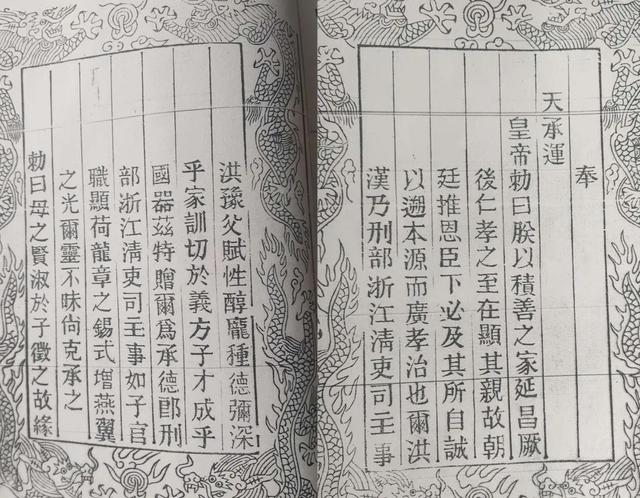 奉
天承運
皇帝勅曰朕以積善之家延昌厥
後仁孝之至在顯其親故朝
廷推恩臣下必及其所自誠
以遡本源而廣孝治也爾洪
漢乃刑部浙江清吏司主事
洪豫父賦性醇龐種德彌深
乎家訓切於義方子才成乎
國器茲特贈爾爲承德郎刑
部浙江清吏司主事如子官
職顯荷龍章之錫式增燕翼
之光爾靈不昧尚克承之
勅曰母之賢淑於子徵之故緣